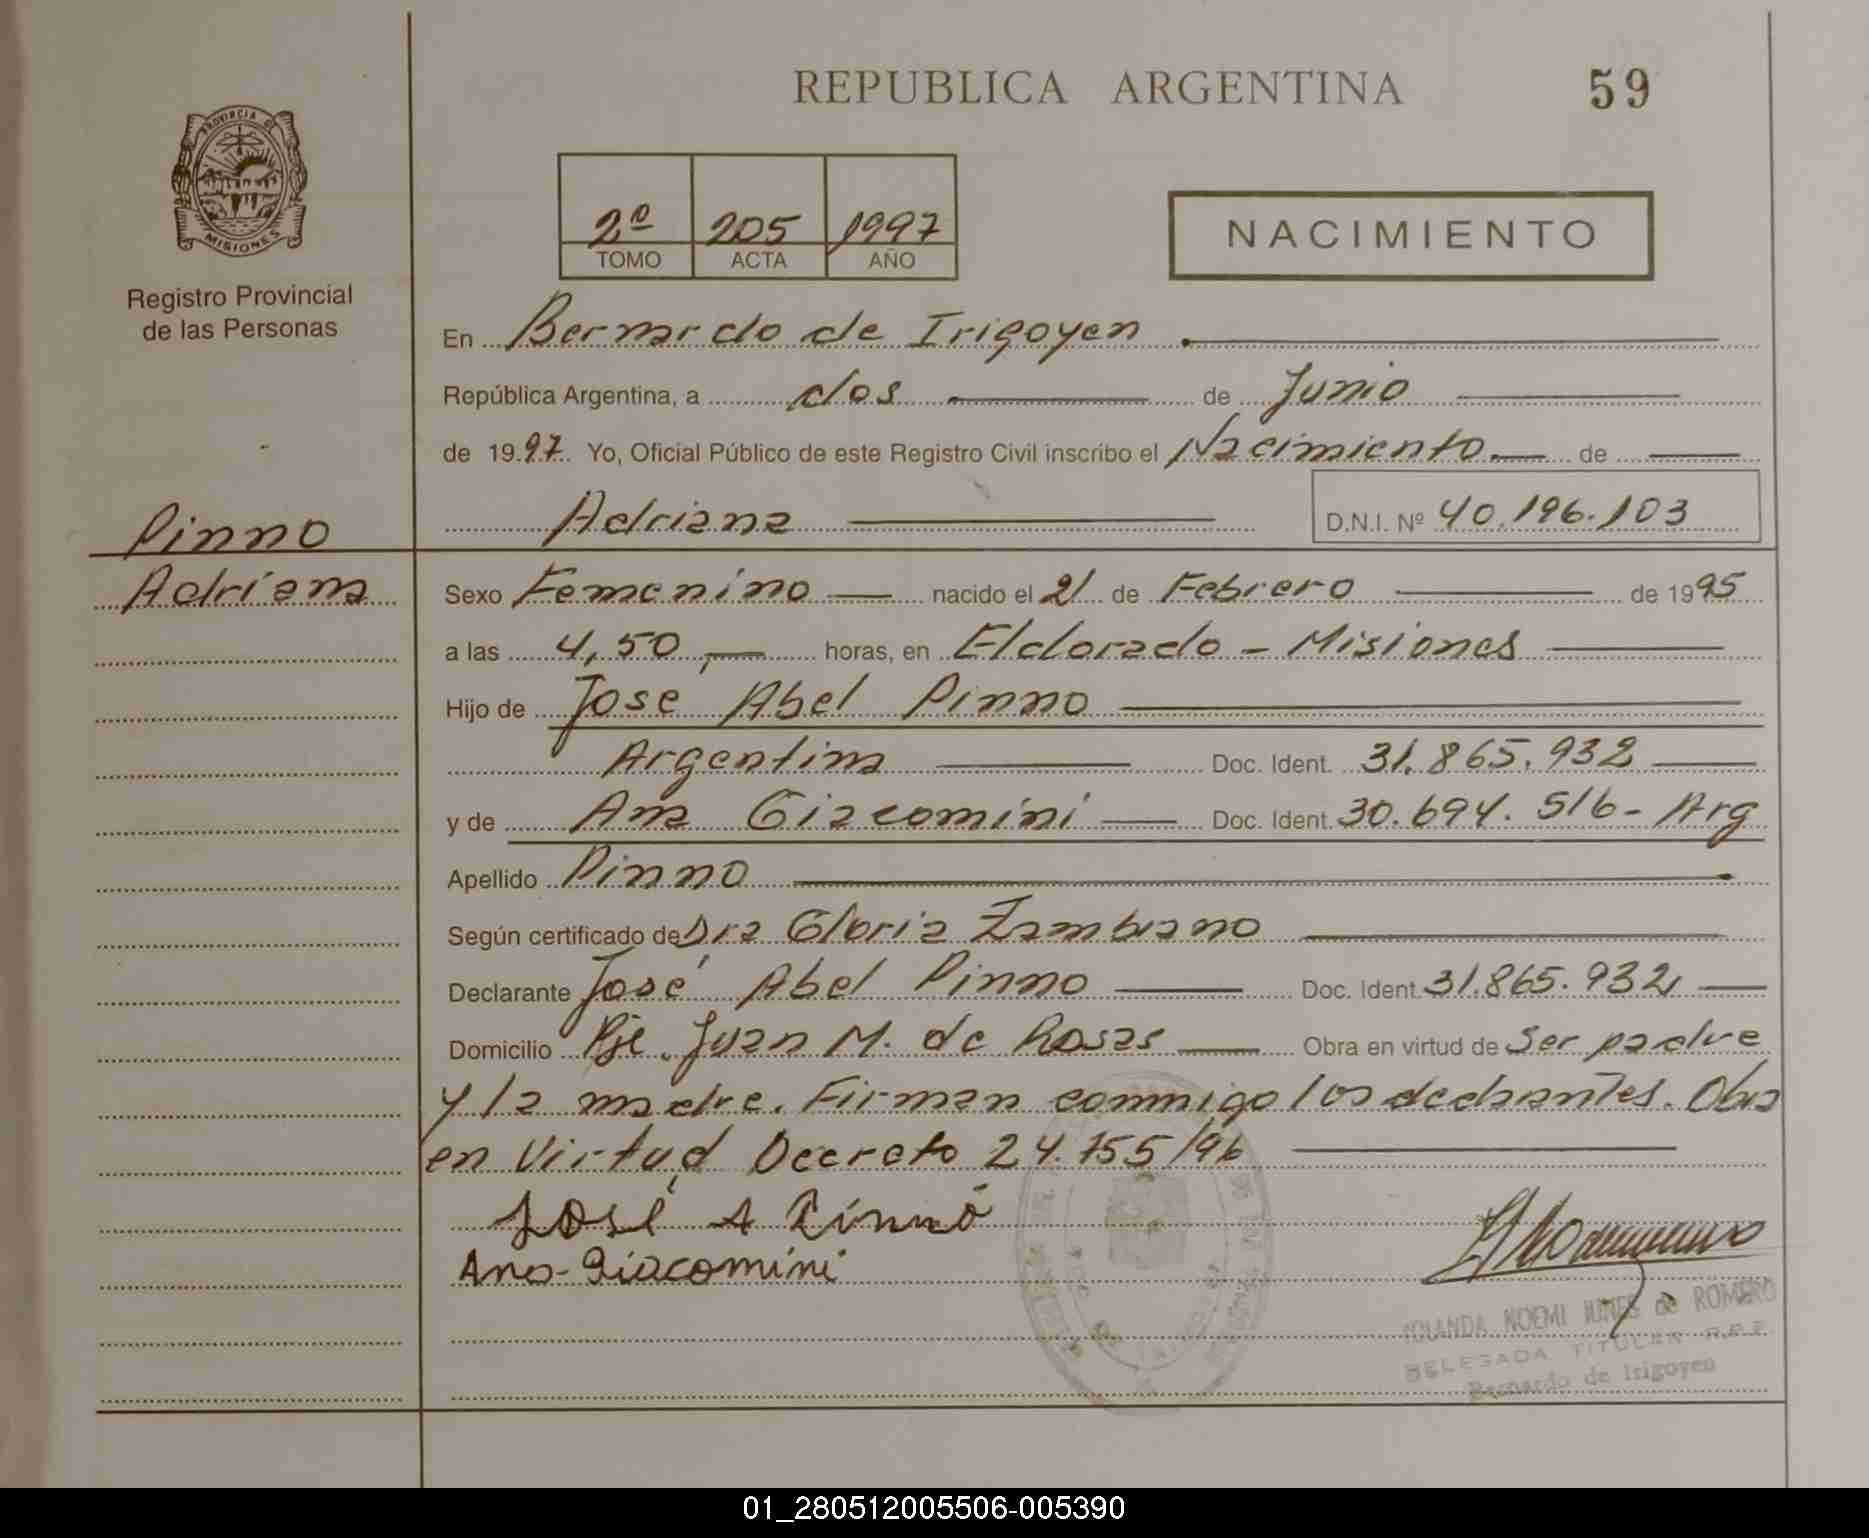 REPUBLICA ARGENTINA
59
PROVINCIA DE
MISIONES
Registro Provincial
de las Personas
2º 205 1997
TOMO ACTA AÑO
NACIMIENTO
En Bernardo de Irigoyen
República Argentina, a dos de Junio
de 1997. Yo, Oficial Público de este Registro Civil inscribo el Nacimiento de
Adriana D.N.I. Nº 40.196.103
Pinno
Adriana
Sexo Femenino nacido el 21 de Febrero de 1995
a las 4,50 horas, en Eldorado - Misiones
Hijo de Jose Abel Pinno
Argentina Doc. Ident. 31.865.932
y de Ana Giacomini Doc. Ident. 30.694.516- Arg
Apellido Pinno
Según certificado de Dra Gloria Zambiano
Declarante José Abel Pinno Doc. Ident. 31.865.932
Domicilio Pje. Juan M. de Rosas Obra en virtud de Ser padre
y la madre. Firman conmigo los declarantes. Obra
en Virtud Decreto 24.755/96
José A Pinno
Ana Giacomini
YOLANDA NOEMI JUNES de ROMERO
DELEGADA TITULAR R.P.P.
Bernardo de Irigoyen
01_280512005506-005390